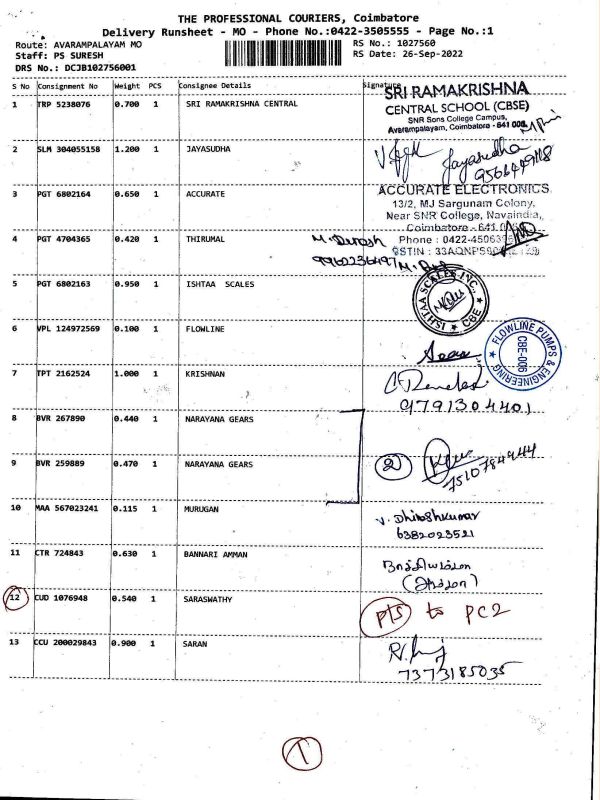 THE PROFESSIONAL COURIERS, Coimbatore
Delivery Runsheet - MO - Phone No.:0422-3505555 - Page No.:1
Route: AVARAMPALAYAM MO
RS No.: 1027560
Staff: PS SURESH
RS Date: 26-Sep-2022
DRS No.: DCJB102756001
S No Consignment No Weight PCS Consignee Details Signature
1 TRP 5238076 0.700 1 SRI RAMAKRISHNA CENTRAL
SRI RAMAKRISHNA
CENTRAL SCHOOL (CBSE)
SNR Sons College Campus,
Avarampalayam, Coimbatore - 641 006.
2 SLM 304055158 1.200 1 JAYASUDHA
Jayasudha
3 PGT 6802164 0.650 1 ACCURATE
ACCURATE ELECTRONICS
13/2, MJ Sargunam Colony,
Near SNR College, Navaindia,
Coimbatore - 641 006
4 PGT 4704365 0.420 1 THIRUMAL
Phone : 0422-450636
GSTIN : 33AQNPS
5 PGT 6802163 0.950 1 ISHTAA SCALES
ISHTAA SCALES INC.,
CBE
6 VPL 124972569 0.100 1 FLOWLINE
FLOWLINE PUMPS & ENGINEERING
CBE-006
7 TPT 2162524 1.000 1 KRISHNAN
9791304401
8 BVR 267890 0.440 1 NARAYANA GEARS
9 BVR 259889 0.470 1 NARAYANA GEARS
2
7510784944
10 MAA 567023241 0.115 1 MURUGAN
V. Dhineshkumar
6382023521
11 CTR 724843 0.630 1 BANNARI AMMAN
12 CUD 1076948 0.540 1 SARASWATHY
PTS to PC2
13 CCU 200029843 0.900 1 SARAN
7373185035
1